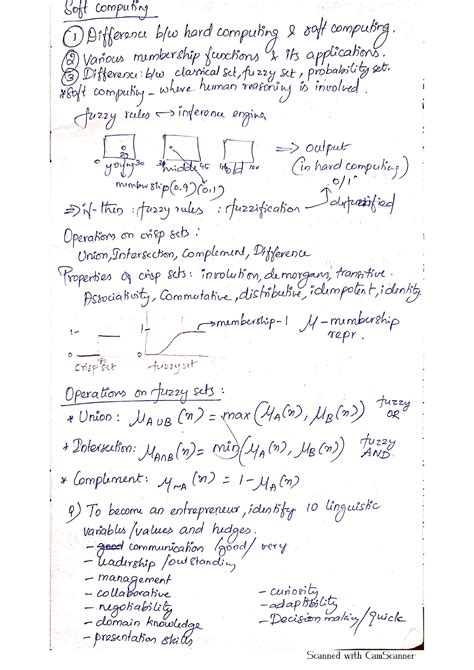 Soft Computing
① Difference b/w hard computing & soft computing.
② Various membership functions & its applications.
③ Difference b/w classical set, fuzzy set, probability set.
*Soft computing - where human reasoning is involved.
fuzzy rules → inference engine
⇒ output
(in hard computing)
0/1
0 young 30 middle 45 old 100
membership (0.9) (0.1)
⇒ if-then : fuzzy rules : fuzzification → defuzzified
Operations on crisp sets :
Union, Intersection, Complement, Difference
Properties of crisp sets : involution, demorgans, transitive.
Associativity, Commutative, distributive, idempotent, identity.
1- 1- → membership-1 μ - membership
repr.
0 0
crisp set fuzzy set
Operations on fuzzy sets :
* Union : μA∪B (x) = max (μA(x), μB(x)) fuzzy OR
* Intersection: μA∩B (x) = min (μA(x), μB(x)) fuzzy AND
* Complement : μ~A (x) = 1 - μA(x)
Q) To become an entrepreneur, identify 10 linguistic
variables/values and hedges.
- communication /good/ very
- leadership /outstanding
- management
- collaborative
- negotiability
- domain knowledge
- presentation skills
- curiosity
- adaptibility
- Decision making /quick
Scanned with CamScanner